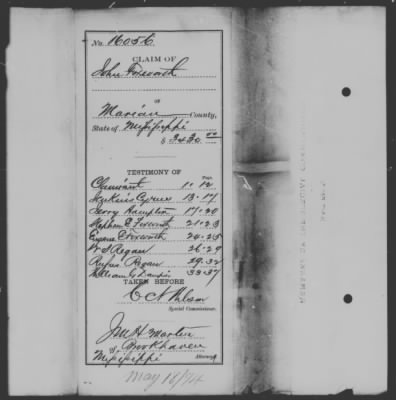 No. 16056
CLAIM OF
John Foxworth
OF
Marion County,
State of Mississippi
$ 3430.00
TESTIMONY OF
Page.
Claimant 1-12
Cyrus 13-17
Jerry Hampton 17-20
Stephen E Foxworth 21-23
Eugene C Foxworth 24-25
W S Regan 26-29
Rufus Regan 29-32
William G 33-37
TAKEN BEFORE
Special Commissioner.
Jas H. Marten
of Brookhaven
Mississippi Attorney
May 18/74